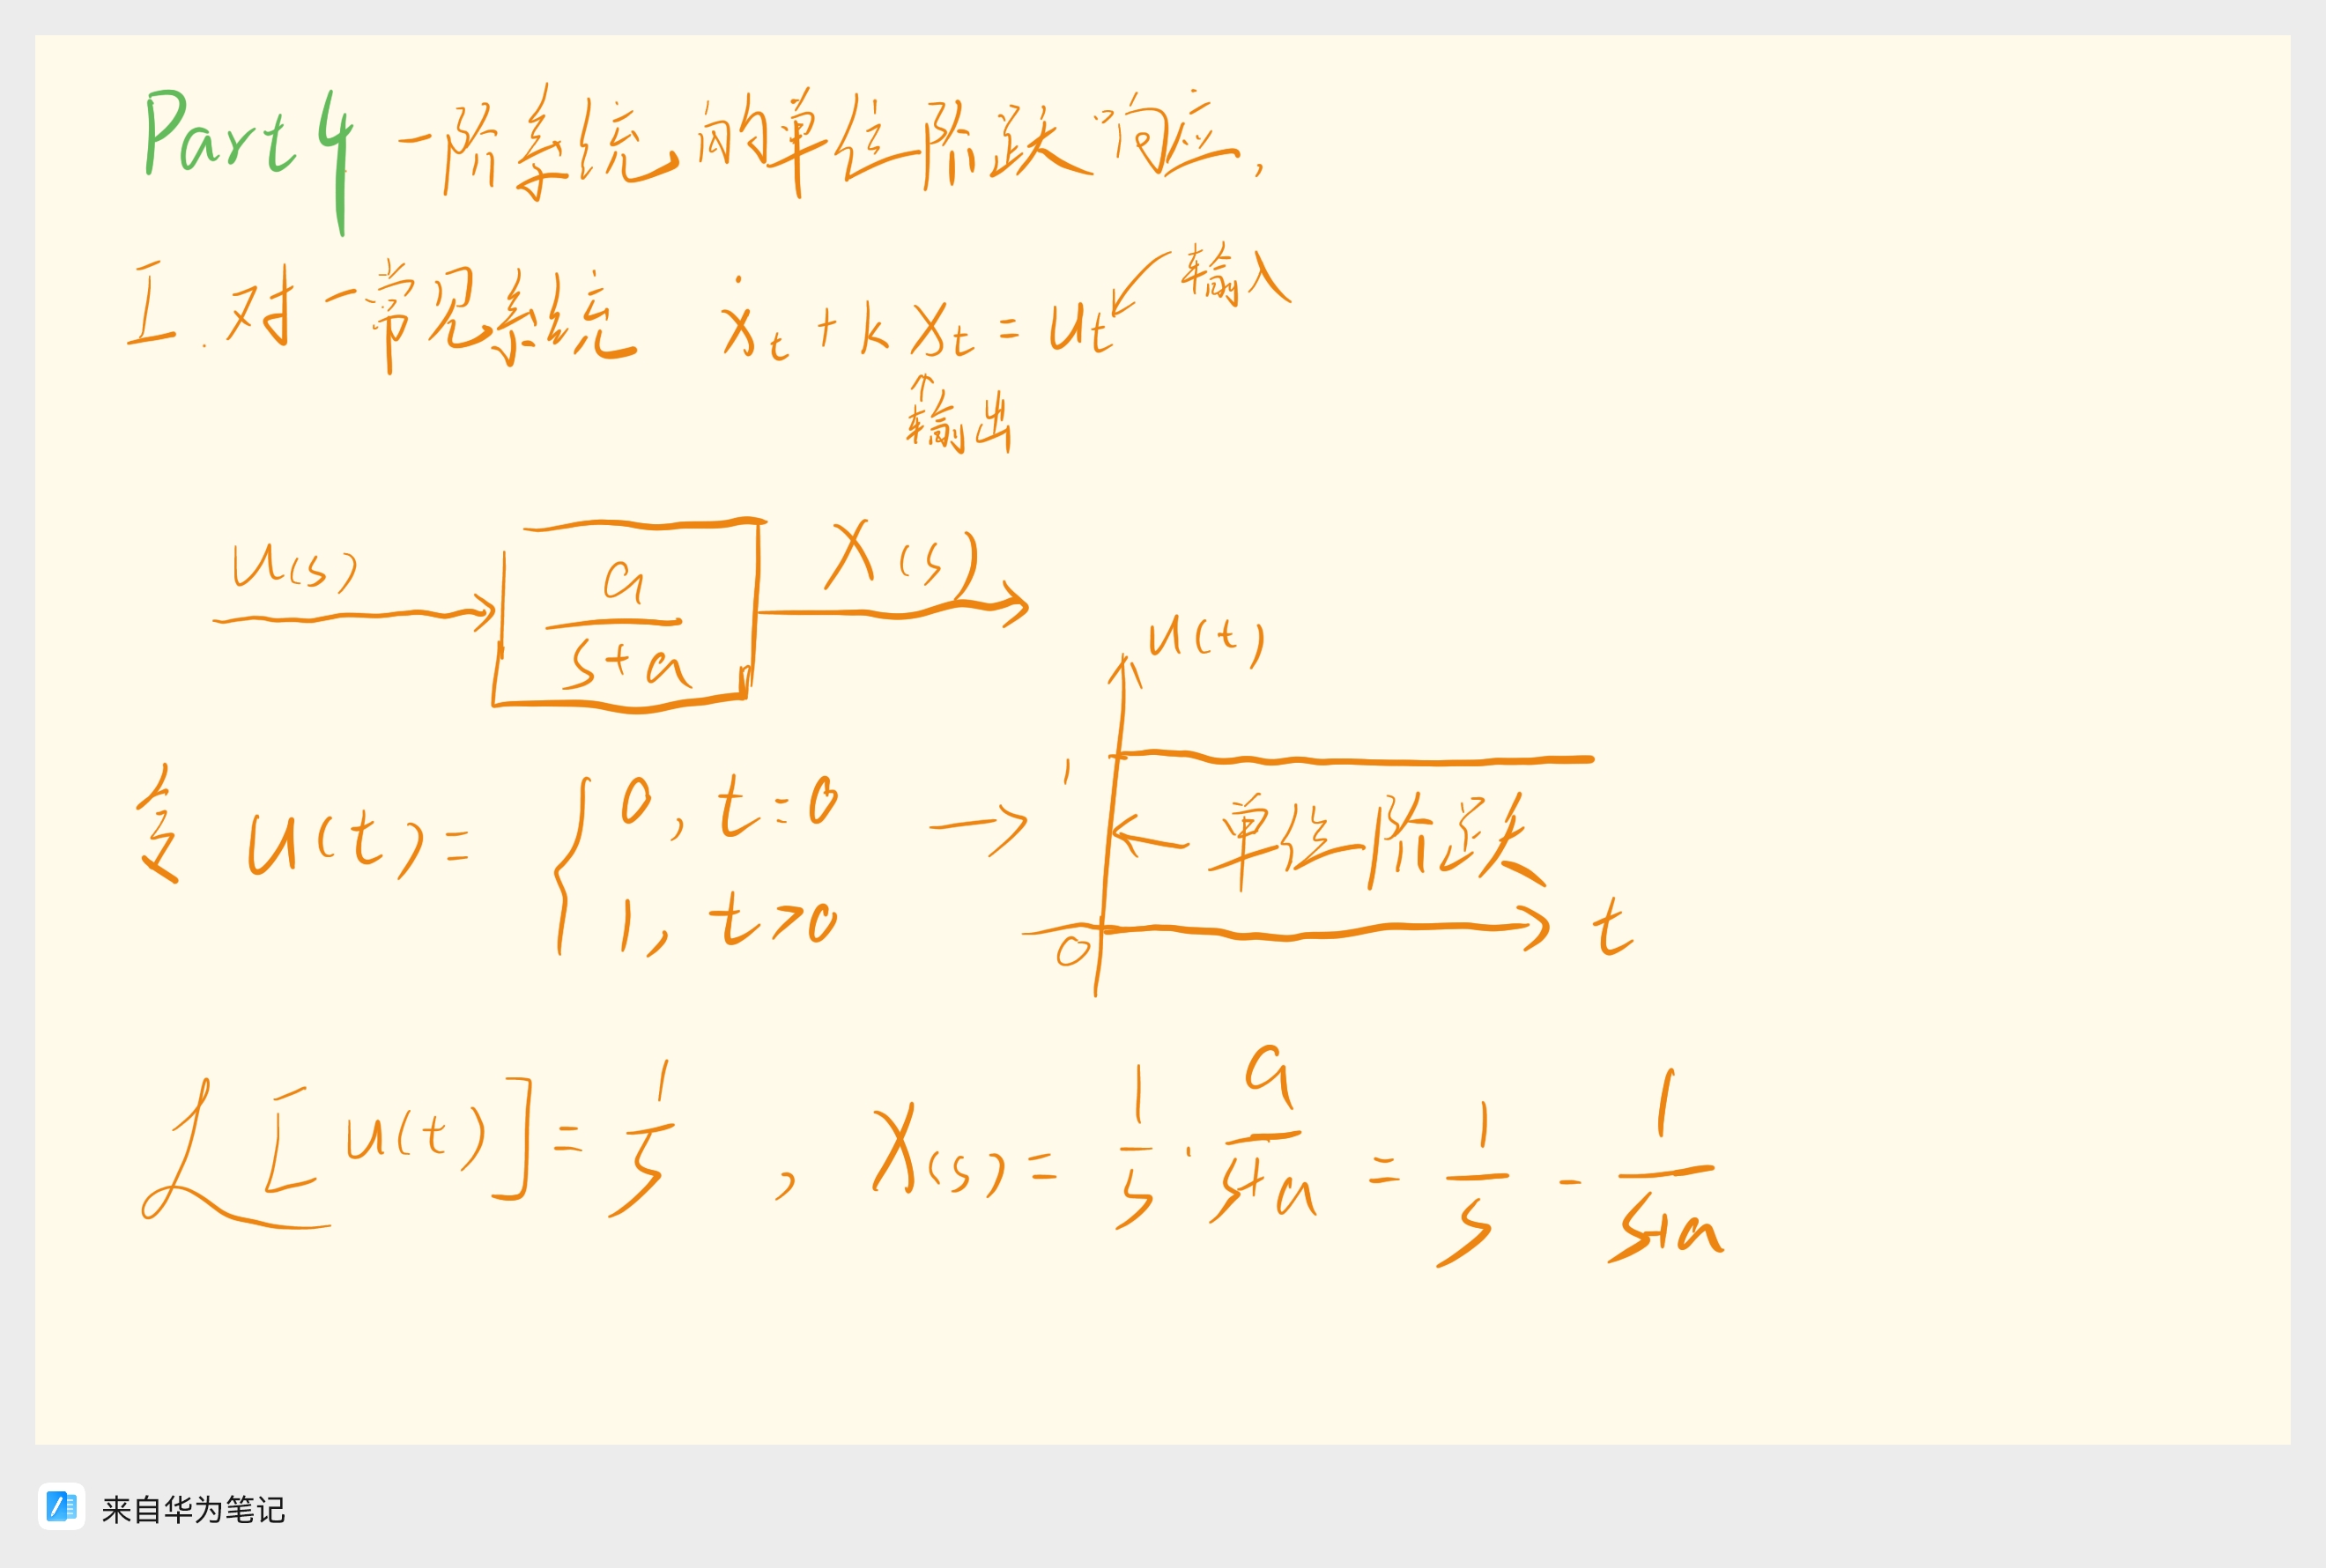 Part4 一阶系统的单位阶跃响应,
I. 对一常见系统 ẋt + kxt = ut 输入
输出
U(s) a/(s+a) X(s)
令 u(t) = { 0, t=0 → u(t) 1 ← 单位阶跃
1, t>0 0 t
ℒ[u(t)] = 1/s , X(s) = 1/s · a/(s+a) = 1/s - 1/(s+a)
来自华为笔记